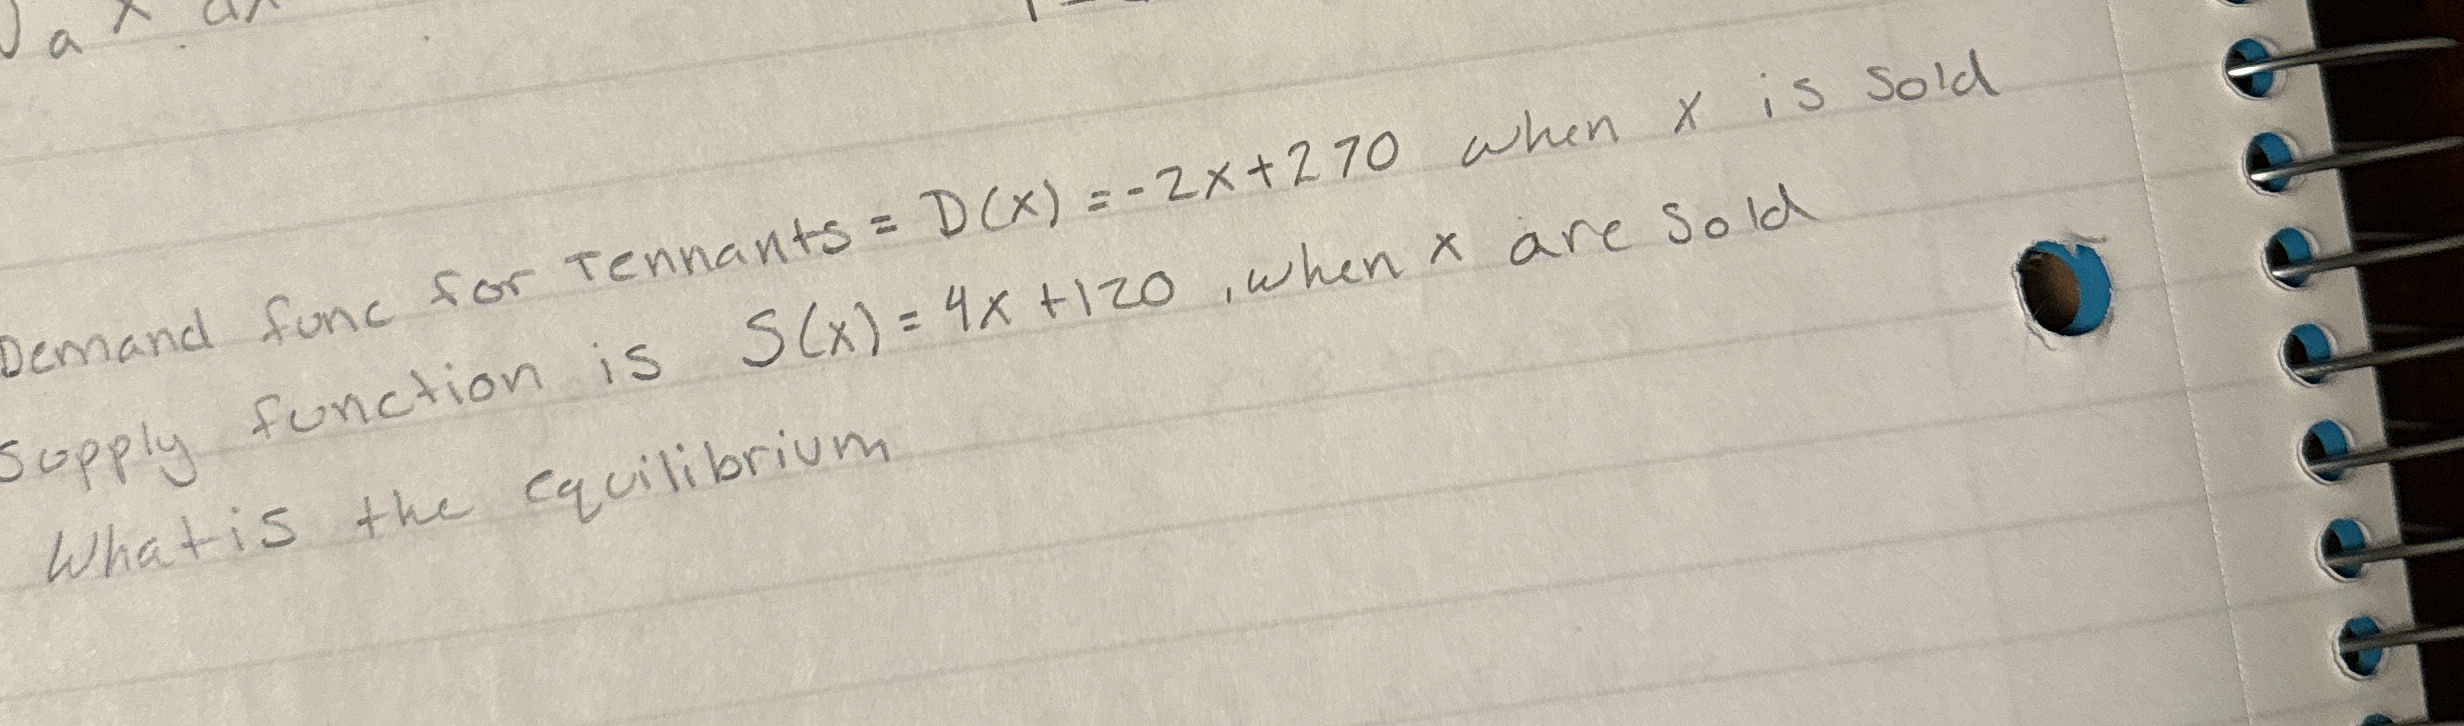 a x dx
Demand func for Tennants = D(x) = -2x+270 when x is sold
Supply function is S(x) = 4x +120 , when x are sold
What is the equilibrium